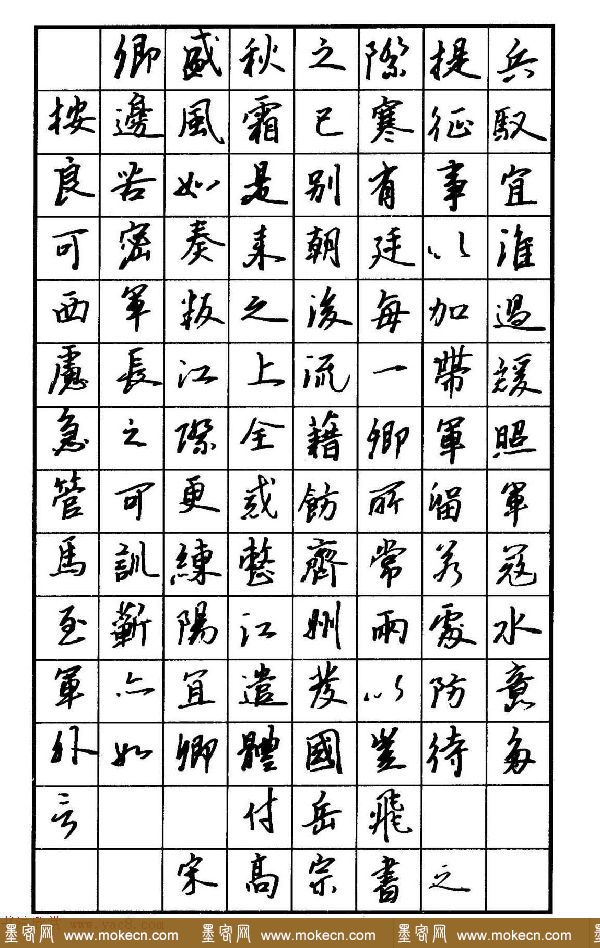 卿盛秋之際提兵
按邊風霜已寒征馭
良苦如是別有事宜
可密奏来朝廷以淮
西軍叛之後每加過
慮長江上流一帶緩
急之際全藉卿軍照
管可更戒飭所留軍
馬訓練整齊常若寇
至蘄陽江州兩處水
軍亦宜遣發以防意
外如卿體國豈待多
言 付岳飛
宋高宗書之
墨客网 www.mokecn.com 墨客网 www.mokecn.com 墨客网 www.mokecn.com